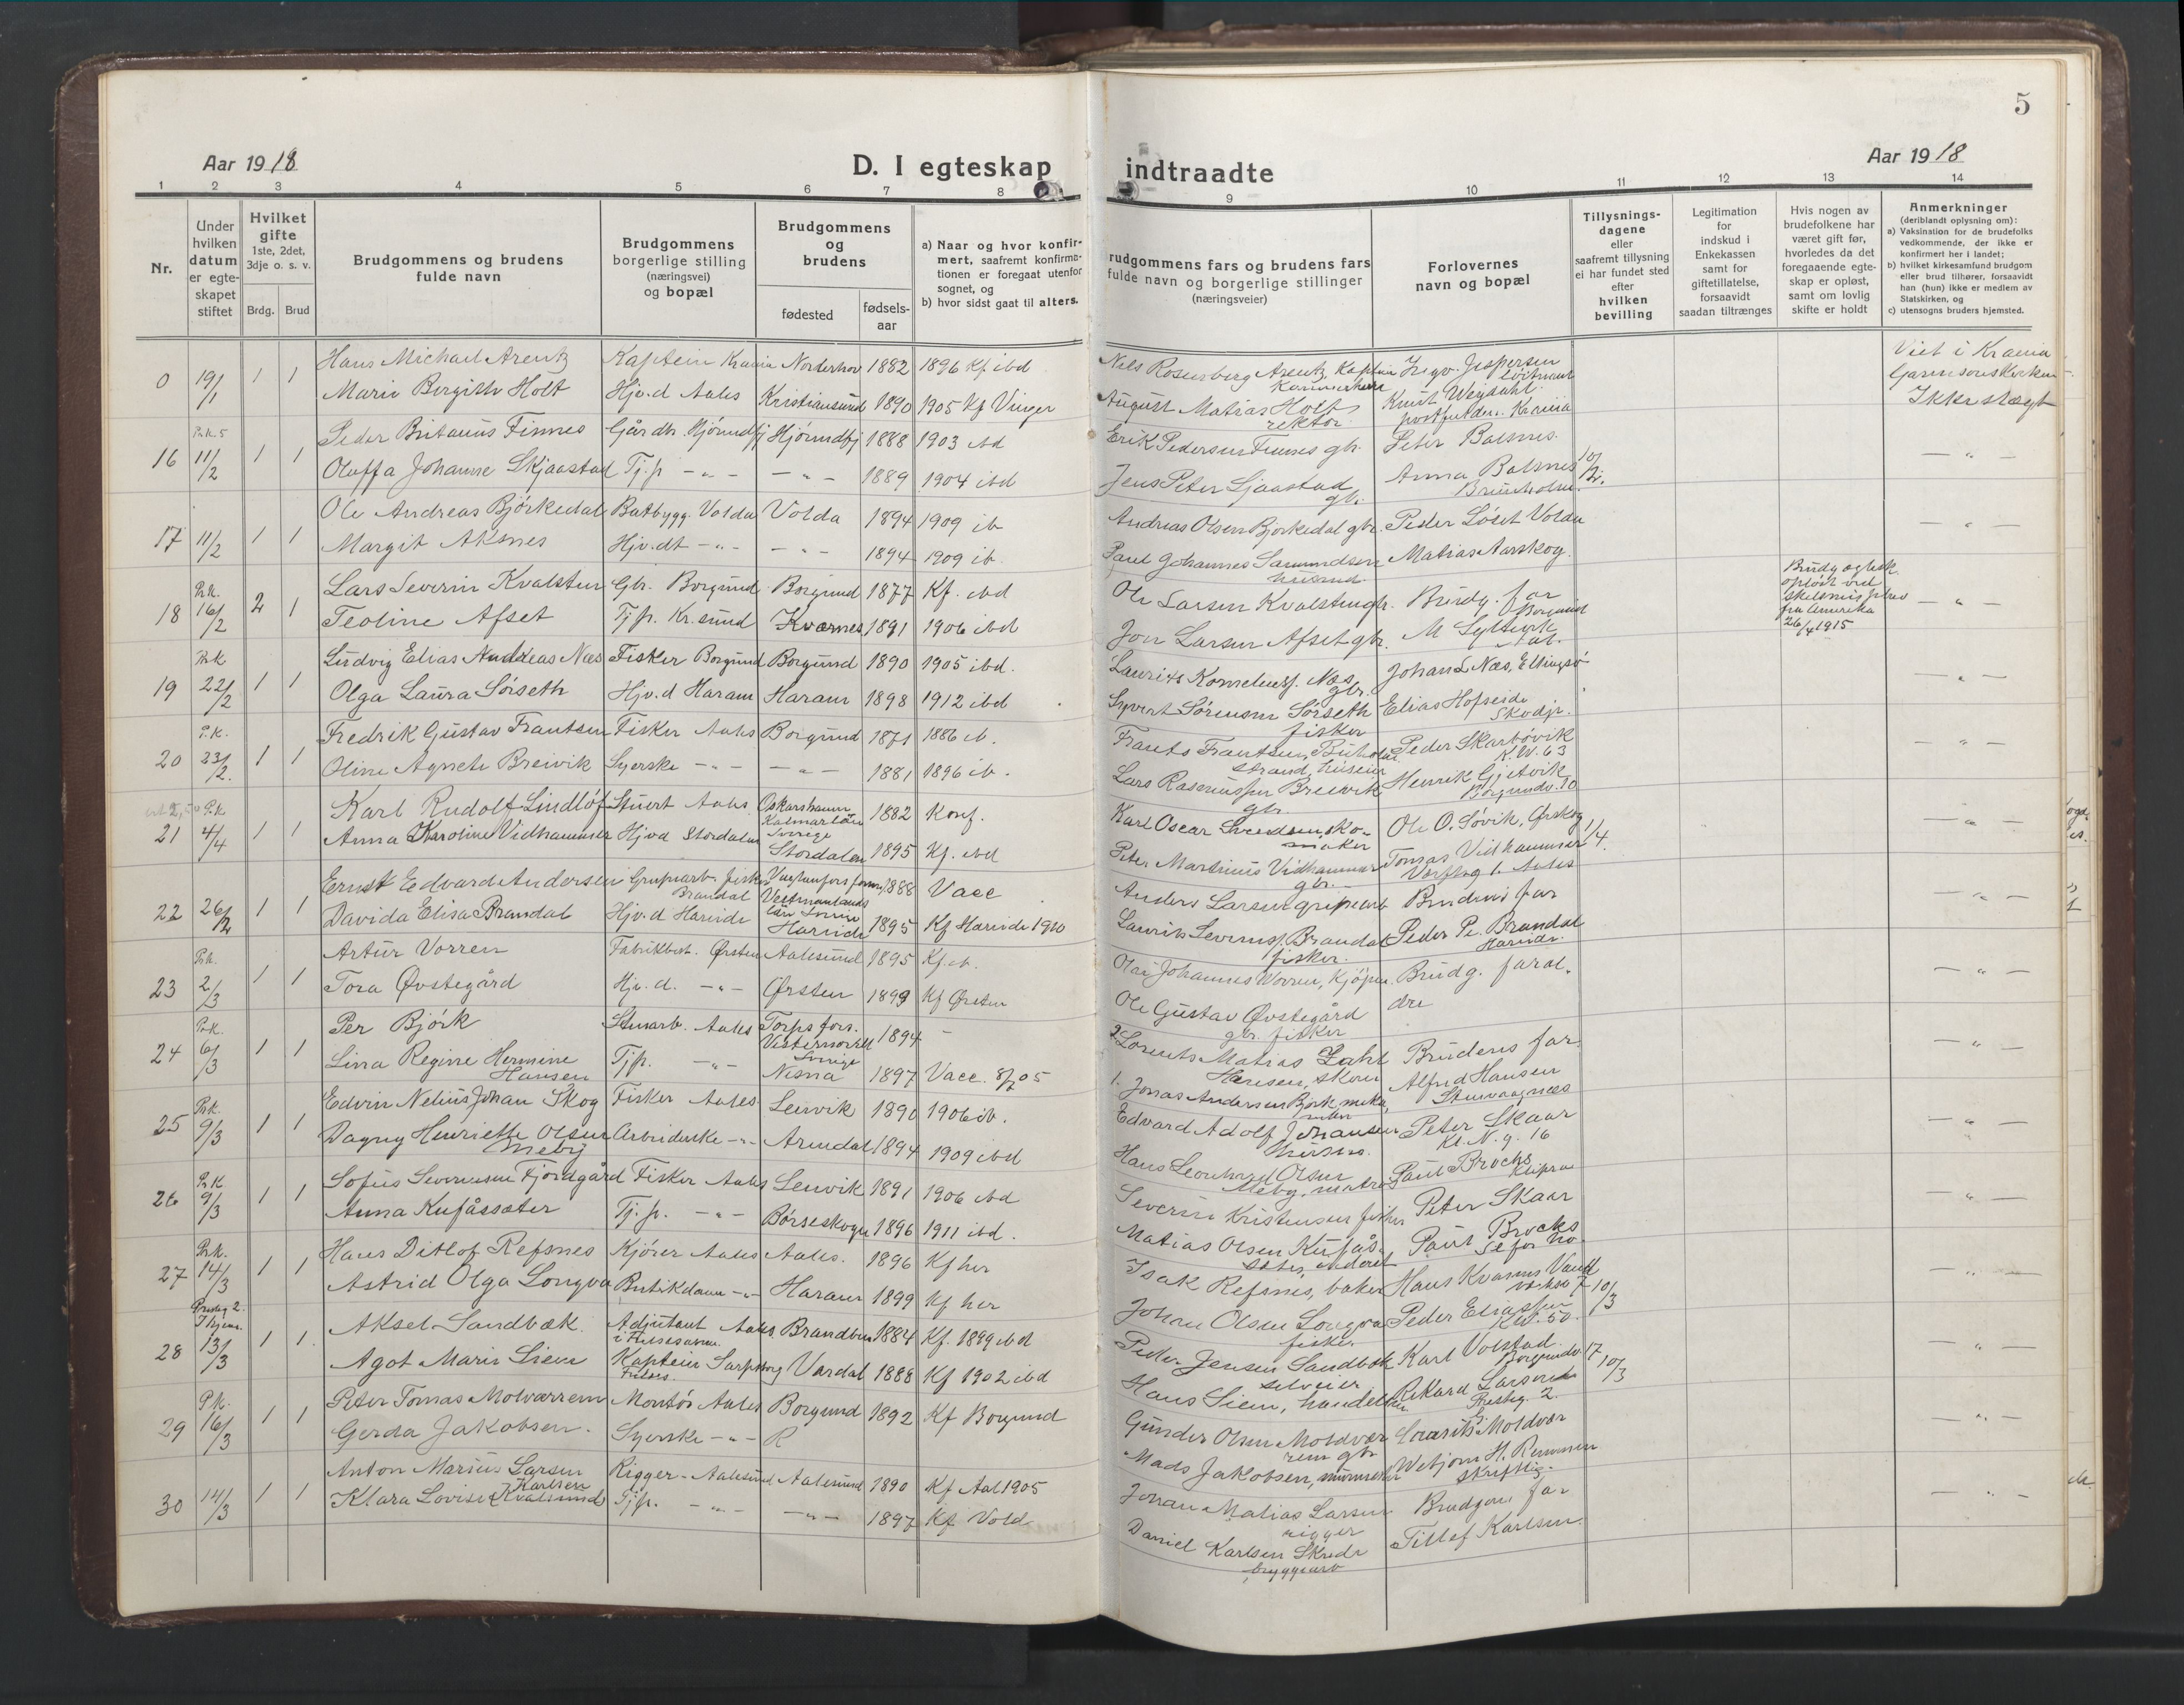 5
Aar 1918
D. I egteskap
indtraadte
Aar 1918
1 2 3 4 5 6 7 8 9 10 11 12 13 14
Nr.
Under hvilken datum er egteskapet stiftet
Hvilket gifte 1ste, 2det, 3dje o. s. v.
Brdg. Brud
Brudgommens og brudens fulde navn
Brudgommens borgerlige stilling (næringsvei) og bopæl
Brudgommens og brudens
fødested
fødselsaar
a) Naar og hvor konfirmert, saafremt konfirmationen er foregaat utenfor sognet, og
b) hvor sidst gaat til alters.
rudgommens fars og brudens fars fulde navn og borgerlige stillinger (næringsveier)
Forlovernes navn og bopæl
Tillysningsdagene eller saafremt tillysning ei har fundet sted efter hvilken bevilling
Legitimation for indskud i Enkekassen samt for giftetillatelse, forsaavidt saadan tiltrænges
Hvis nogen av brudefolkene har været gift før, hvorledes da det foregaaende egteskap er opløst, samt om lovlig skifte er holdt
Anmerkninger (deriblandt oplysning om):
a) Vaksination for de brudefolks vedkommende, der ikke er konfirmert her i landet;
b) hvilket kirkesamfund brudgom eller brud tilhører, forsaavidt han (hun) ikke er medlem av Statskirken, og
c) utensogns bruders hjemsted.
0 19/1 1 1 Hans Michael Arentz Kaptein Krania Norderhov 1882 1896 Kf ibd Nils Rosenberg Arentz, Kaptein Ingv. Jespersen Viet i Krania
Marie Bergith Holt Hjv.d Aales Kristiansund 1890 1905 Kf Vinger August Matias Holt rektor Knut Weydahl Krania Garnisonskirken Ikke slægt
16 11/2 1 1 Peder Britanus Finnes Gårdbr. Hjørundfj Hjørundfj 1888 1903 ibd Erik Pedersen Finnes gbr. Peter Balsnes
Oluffa Johanne Skjaastad Tj.p - " - - " - 1889 1904 ibd Jens Peter Sjaastad gbr. Anna Balsnes Brunholm 10/2. - " -
17 11/2 1 1 Ole Andreas Bjørkedal Batbygg. Volda Volda 1894 1909 ib Andreas Olsen Bjørkedal gbr. Peder Løset Volda
Margit Aksnes Hjv.dt - " - - " - 1894 1909 ib. Paul Johannes Samundsen husmd. Matias Aarskog. - " -
18 Prk. 16/2 2 1 Lars Severin Kvalsten Gbr. Borgund Borgund 1877 Kf. ibd Ole Larsen Kvalsten gbr. Brudg. far Borgund Brudg egtesk. opløst ved skilsmis fra Amerika 26/4 1915
Teoline Afset Tj.p. Kr.sund Kvernes 1891 1906 ibd Jon Larsen Afset gbr. M Syltevik Aal. - " -
19 Prk 22/2 1 1 Ludvig Elias Andreas Næs Fisker Borgund Borgund 1890 1905 ibd. Laurits Korneliusf. Næs gbr. Johan L Næs, Ellingsø
Olga Laura Sørseth Hjv.d Haram Haram 1898 1912 ibd Syvert Sørensen Sørseth fisker Elias Hofseide Skodje. - " -
20 P.k. 23/2. 1 1 Fredrik Gustav Frantsen Fisker Aales Borgund 1871 1886 ib. Frants Frantsen, Buholm strand, husein Peder Skarbøvik K.V. 63
Oline Agnete Breivik Syerske - " - - " - 1881 1896 ib. Lars Rasmussen Breivik gbr. Henrik Gjetvik Borgundv. 10 - " -
21 P.k 4/4 1 1 Karl Rudolf Lindløf Stuert Aales Oskarshamn Kalmarlän Sverige 1882 Konf. Karl Oscar Svedsen, skomaker Ole O. Søvik, Ørskog 1/4.
Anna Karoline Vidhammer Hjvd Stordalen Stordalen 1895 Kf. ibd Peter Martinius Vidhammer gbr. Tomas Vidhammer Aales - " -
22 26/2 1 1 Ernst Edvard Andersen Grupearb. fisker Brandal Vestmanlands län Sverige 1888 Vacc Anders Larsen grupearb Brudens far
Davida Elisa Brandal Hjv.d Hareide Hareide 1895 Kf Hareide 1910 Laurits Severinsf. Brandal fisker. Peder Pe. Brandal Hareide. - " -
23 Prk. 2/3 1 1 Artur Vorren Fabrikbest. Ørsten Aalesund 1895 Kf. ib. Olai Johannes Vorren, Kjøpm. Brudg. foraldre
Tora Øvstegård Hjv.d. - " - Ørsten 1899 Kf Ørsten Ole Gustav Øvstegård gbr. fisker - " -
24 Prk. 6/3 1 1 Per Bjørk Stuarb. Aales Torps fors. Vesternorrl Sverige 1894 - 2 Lorents Matias Zahl Hansen, skom Brudens far.
Lina Regine Hermine Hansen Tjp. - " - Nesna 1897 Vacc. 8/7 05 1. Jonas Andersen Bjørk Alfred Hansen Steinvaagnæs - " -
25 Prk. 9/3 1 1 Edvin Nelius Johan Skog Fisker Aales Lenvik 1890 1906 ib. Edvard Adolf Johansen husm. Peter Skaar Kl. N. g. 16
Dagny Henriette Olsen Meby Arbeiderske - " - Arendal 1894 1909 ibd Hans Leonhard Olsen Meby, matros Paul Brochs Klipra - " -
26 Prk 9/3 1 1 Sofus Severinsen Fjordgård Fisker Aales Lenvik 1891 1906 ibd Severin Kristensen fisker Peter Skaar
Anna Kufåssæter Tj.p. - " - Børseskogn 1896 1911 ibd. Matias Olsen Kufåssæter Paul Brochs Se for no - " -
27 Prk. 14/3 1 1 Hans Ditlof Refsnes Kjører Aales Aales. 1896 Kf her Isak Refsnes, baker Hans Kvasnes Vand 7 10/3
Astrid Olga Longva Butikdame - " - Haram 1899 Kf her Johan Olsen Longva fisker. Peder Eliassen K.V. 50. - " -
28 13/3 1 1 Aksel Sandbæk. Adjutant Aales i Frelsesarm. Brandbu 1884 Kf. 1899 ibd Peder Jensen Sandbæk selveier Karl Volstad Borgundv 17 10/3
Agot Marie Lien Kaptein Sarpsborg Frelses. Vardal 1888 Kf 1902 ibd Hans Lien, handelsm Rikard Larsen 2. - " -
29 P.k. 16/3 1 1 Peter Tomas Molværrem Montør Aales Borgund 1892 Kf Borgund Gunder Olsen Moldværrem gbr Laurits Moldvær
Gerda Jakobsen. Syerske - " - R Mads Jakobsen, murmester Vebjørn H. Remmen skriftlig. - " -
30 14/3 1 1 Anton Marius Larsen Rigger - Aalesund Aalesund 1890 Kf Aal 1905 Johan Matias Larsen rigger Brudgom. far
Klara Lovise Karlsen Kvalsund Tjp. - " - - " - 1897 Kf Vold Daniel Karlsen Skrede bryggearb Tellef Karlsen. - " -